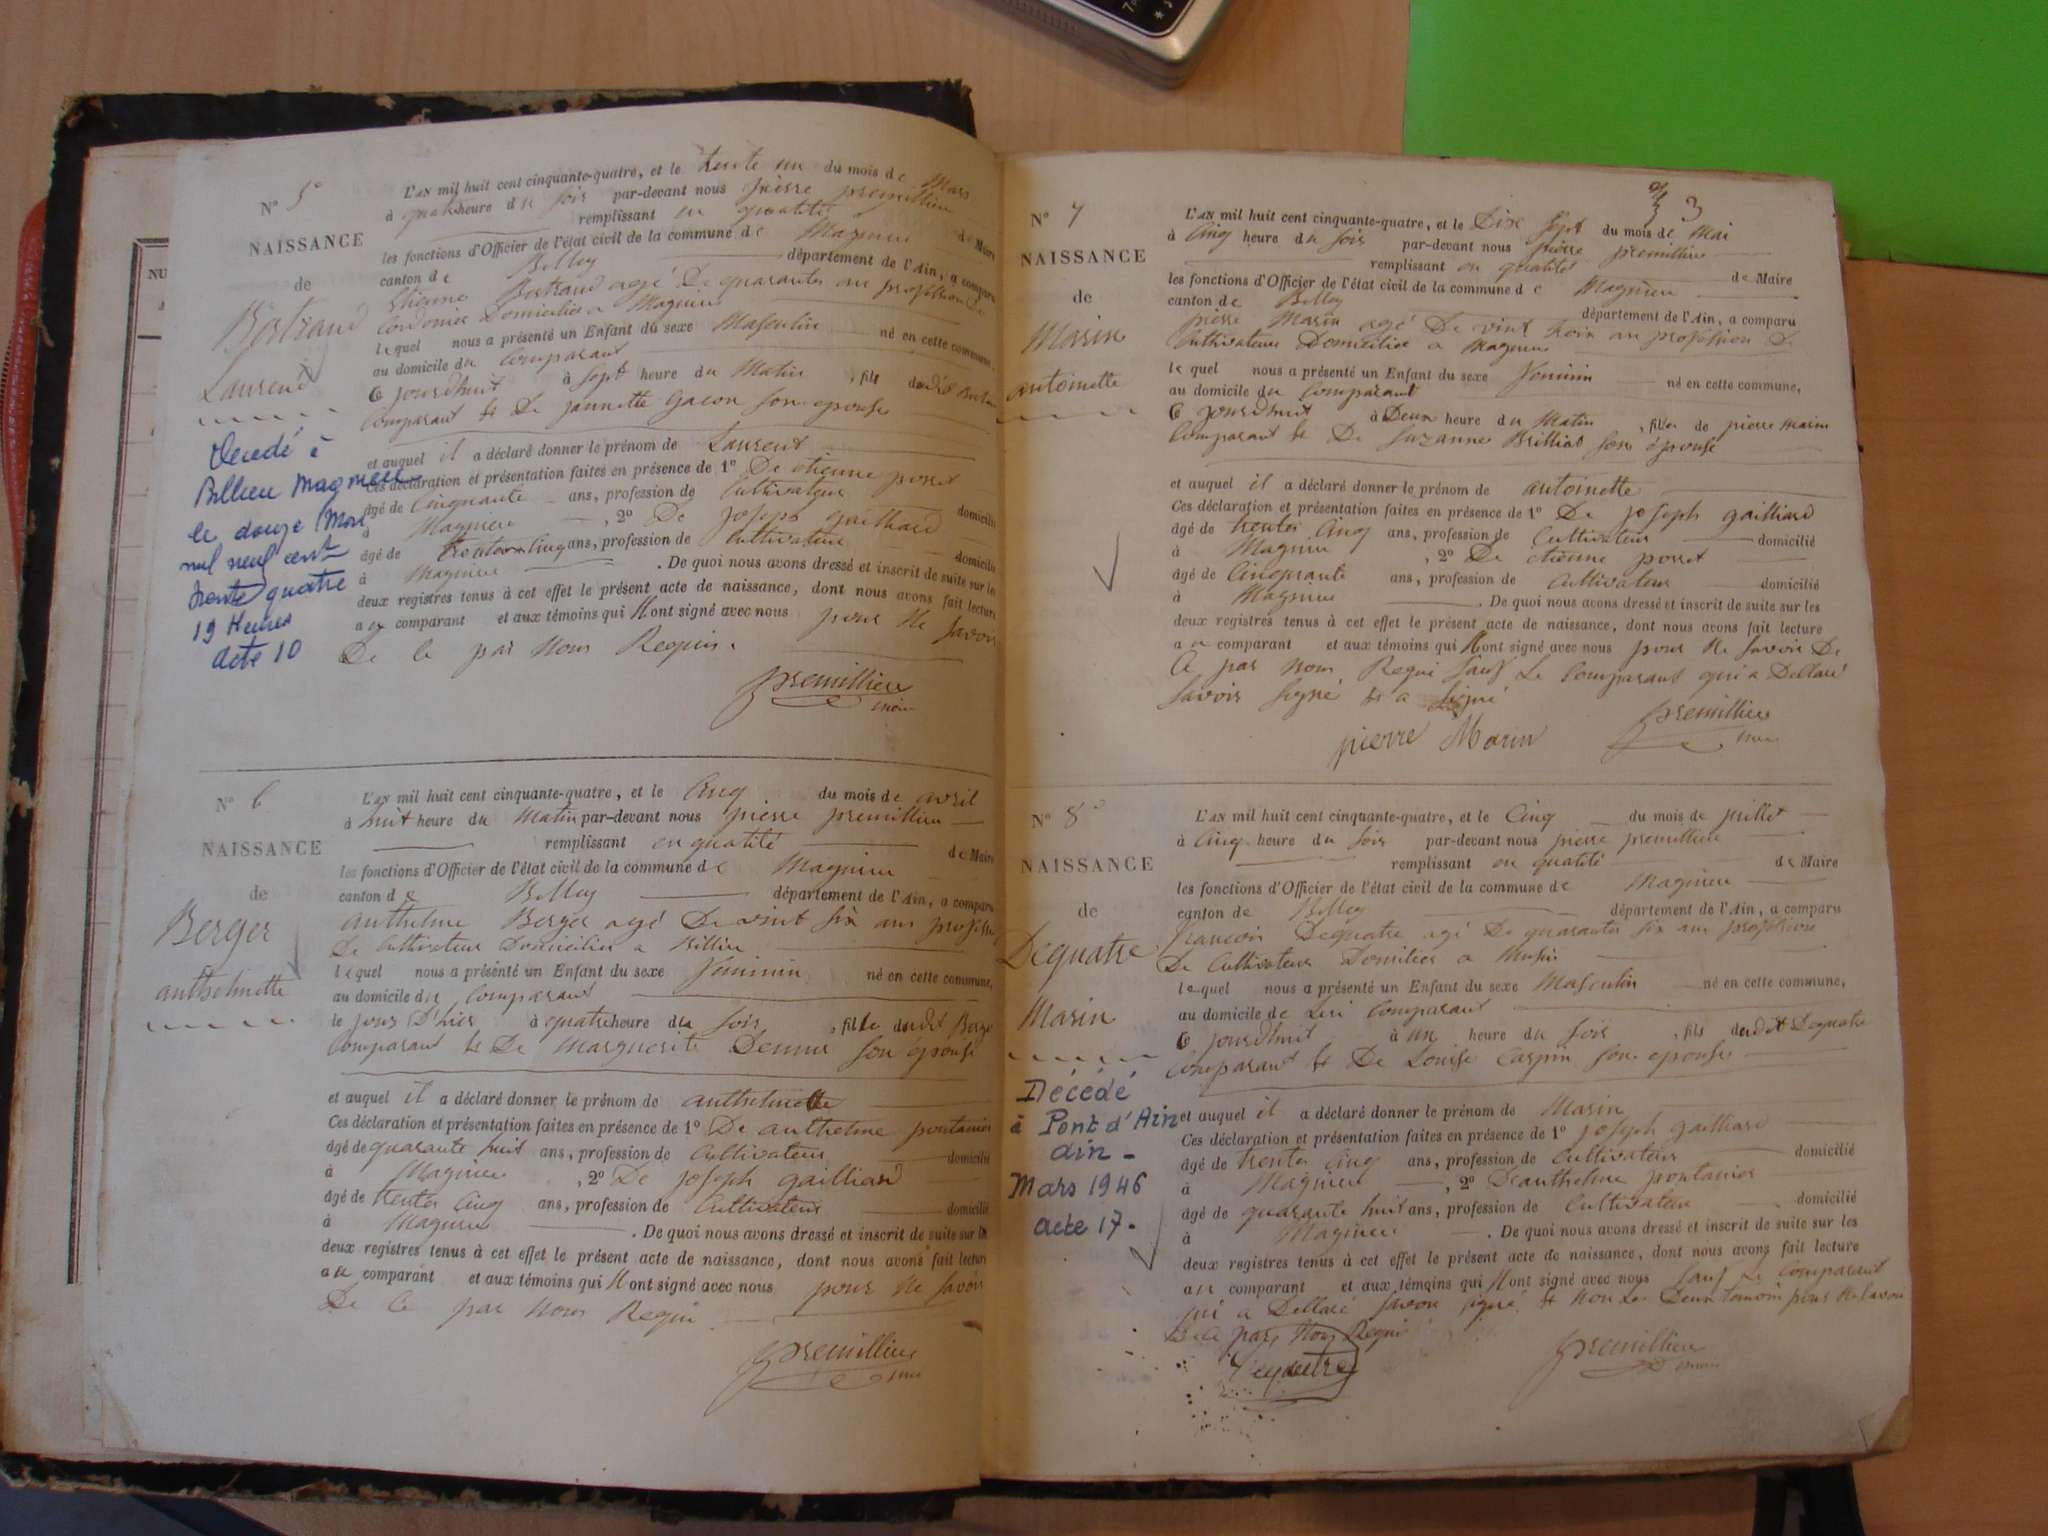 N° 5°
NAISSANCE
de
Bertrand
Laurent
décédé à
Pollieu Magnieu
le douze Mars
mil neuf cent
trente quatre
19 Heures
acte 10
L'AN mil huit cent cinquante-quatre, et le trente un du mois de Mars
à quatre heure du soir par-devant nous pierre premillieu
remplissant en qualité de Maire
les fonctions d'Officier de l'état civil de la commune de Magnieu
canton de Belley département de l'Ain, a comparu
Etienne Bertrand agé De quarante an profession De
Cordonier Domicilié a Magnieu
lequel nous a présenté un Enfant du sexe Masculin né en cette commune,
au domicile du Comparant
C jourdhuit à sept heure du Matin, fils dudit
Comparant & De jannette Gacon son epouse
et auquel il a déclaré donner le prénom de Laurent
Ces déclaration et présentation faites en présence de 1° De etienne
âgé de Cinquante ans, profession de Cultivateur domicilié
à Magnieu, 2° De joseph gailliard
âgé de trente Cinq ans, profession de Cultivateur domicilié
à Magnieu. De quoi nous avons dressé et inscrit de suite sur les
deux registres tenus à cet effet le présent acte de naissance, dont nous avons fait lecture
au comparant et aux témoins qui N ont signé avec nous pour Ne savoir
De Ce par Nous Requis.
premillieu
maire
N° 6
NAISSANCE
de
Berger
anthelmette
L'AN mil huit cent cinquante-quatre, et le Cinq du mois de avril
à huit heure du Matin par-devant nous pierre premillieu
remplissant en qualité de Maire
les fonctions d'Officier de l'état civil de la commune de Magnieu
canton de Belley département de l'Ain, a comparu
anthelme Berger agé De vint six ans
De Cultivateur Domicilié a
lequel nous a présenté un Enfant du sexe Feminin né en cette commune,
au domicile du Comparant
le jour D'hier à quatre heure du soir, fille dudit Berger
Comparant & De Marguerite son épouse
et auquel il a déclaré donner le prénom de anthelmette
Ces déclaration et présentation faites en présence de 1° De anthelme pontanier
âgé de quarante huit ans, profession de Cultivateur domicilié
à Magnieu, 2° De joseph gailliard
âgé de trente Cinq ans, profession de Cultivateur domicilié
à Magnieu. De quoi nous avons dressé et inscrit de suite sur les
deux registres tenus à cet effet le présent acte de naissance, dont nous avons fait lecture
au comparant et aux témoins qui N ont signé avec nous pour Ne savoir
De Ce par Nous Requi
premillieu
maire
3
N° 7
NAISSANCE
de
Marin
antoinette
L'AN mil huit cent cinquante-quatre, et le Dixe sept du mois de Mai
à Cinq heure du soir par-devant nous pierre premillieu
remplissant en qualité de Maire
les fonctions d'Officier de l'état civil de la commune de Magnieu
canton de Belley département de l'Ain, a comparu
pierre Marin agé De vint trois an profession De
Cultivateur Domicilié a Magnieu
lequel nous a présenté un Enfant du sexe Feminin né en cette commune,
au domicile du Comparant
C jourdhuit à Deux heure du Matin, fille de pierre Marin
Comparant & De Suzanne Brilliat son épouse
et auquel il a déclaré donner le prénom de antoinette
Ces déclaration et présentation faites en présence de 1° De joseph gailliard
âgé de trente Cinq ans, profession de Cultivateur domicilié
à Magnieu, 2° De etienne
âgé de Cinquante ans, profession de Cultivateur domicilié
à Magnieu. De quoi nous avons dressé et inscrit de suite sur les
deux registres tenus à cet effet le présent acte de naissance, dont nous avons fait lecture
au comparant et aux témoins qui N ont signé avec nous pour Ne savoir De
Ce par Nous Requi Sauf Le Comparant qui a Dellaré
Savoir signé & a signé
pierre Marin
premillieu
maire
N° 8°
NAISSANCE
de
Dequatre
Marin
Décédé
à Pont d'Ain
Ain -
Mars 1946
acte 17.
L'AN mil huit cent cinquante-quatre, et le Cinq du mois de juillet
à Cinq heure du soir par-devant nous pierre premillieu
remplissant en qualité de Maire
les fonctions d'Officier de l'état civil de la commune de Magnieu
canton de Belley département de l'Ain, a comparu
francois Dequatre agé De quarante six ans profession
De Cultivateur Domilier a
lequel nous a présenté un Enfant du sexe Masculin né en cette commune,
au domicile de Lui Comparant
C jourdhuit à un heure du soir, fils dudit Dequatre
Comparant & De Louise Carpin son epouse
et auquel il a déclaré donner le prénom de Marin
Ces déclaration et présentation faites en présence de 1° joseph gailliard
âgé de trente Cinq ans, profession de Cultivateur domicilié
à Magnieu, 2° De anthelme pontanier
âgé de quarante huit ans, profession de Cultivateur domicilié
à Magnieu. De quoi nous avons dressé et inscrit de suite sur les
deux registres tenus à cet effet le présent acte de naissance, dont nous avons fait lecture
au comparant et aux témoins qui N ont signé avec nous Sauf Le Comparant
qui a Dellaré savoir signé & Non Les Deux temoin pour Ne savoir
De Ce par Nous Requi
Dequatre
premillieu
maire